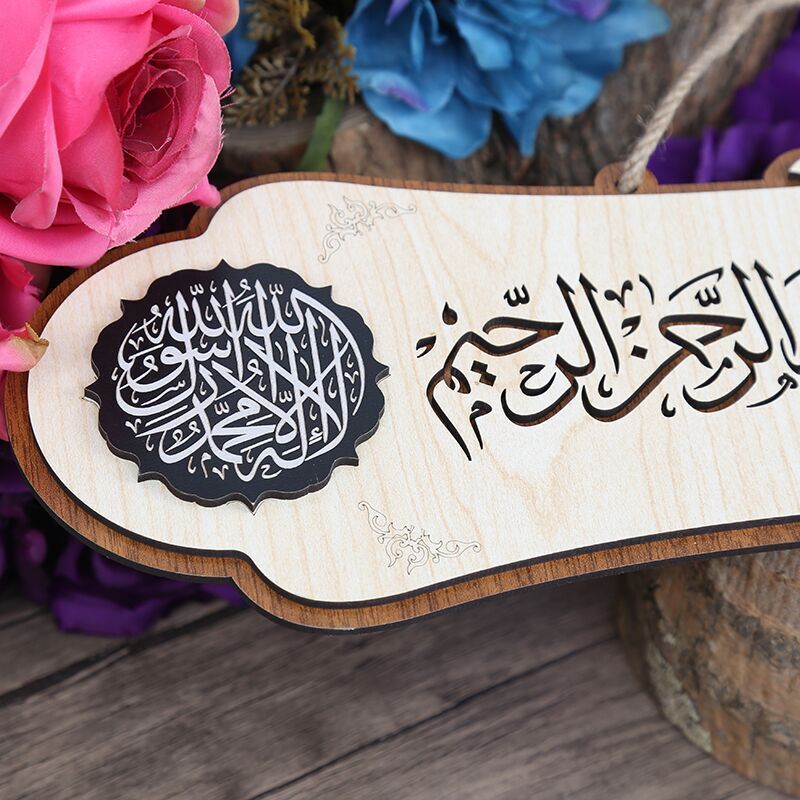 الرحمن الرحيم
لا إله إلا الله محمد رسول الله